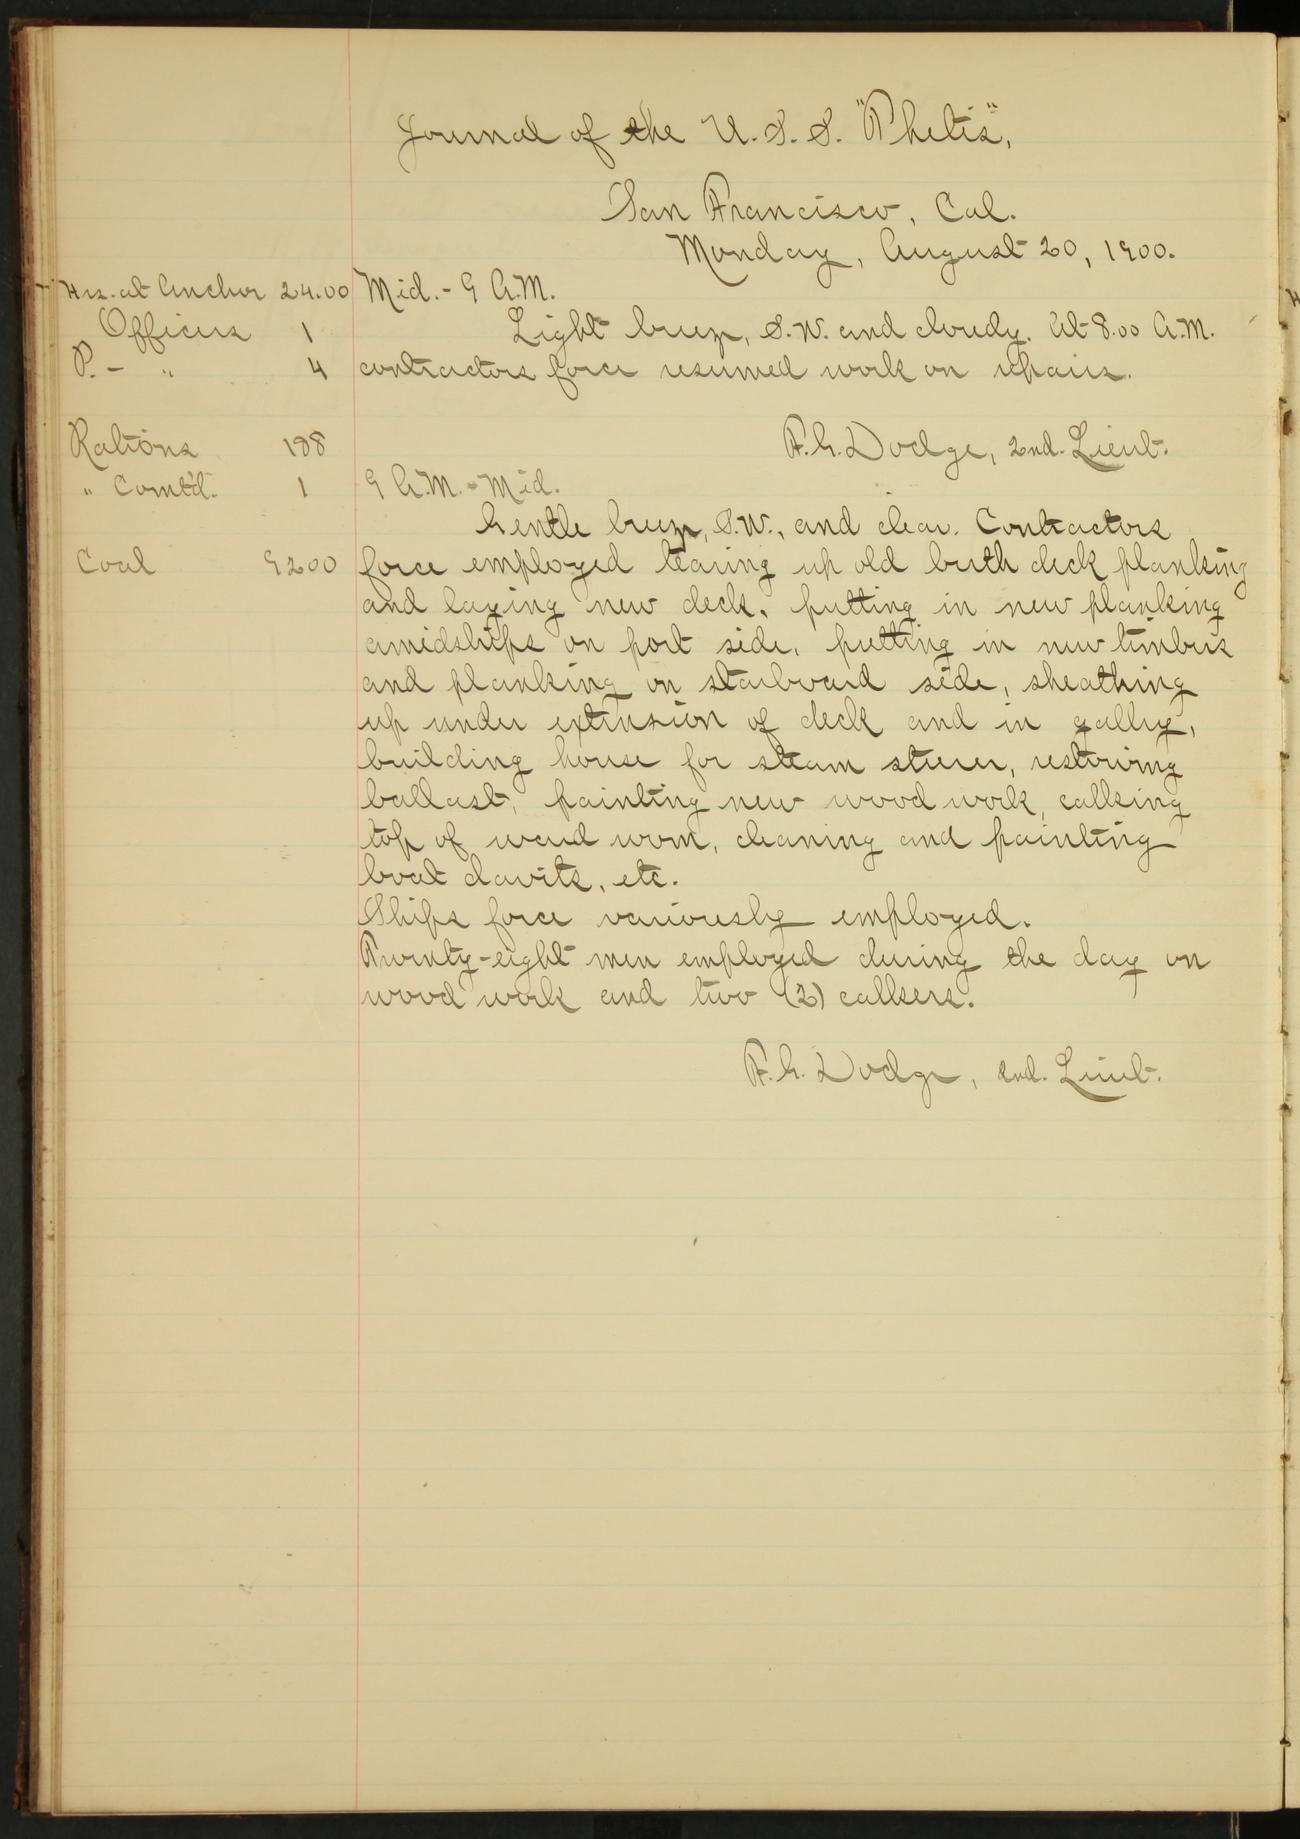 Journal of the U.S.S. "Thetis",
San Francisco, Cal.
Monday, August 20, 1900.
Hrs. at Anchor 24.00
Officers 1
P. - " 4
Rations 188
" Com'td. 1
Coal 9200
Mid. - 9 A.M.
Light breeze, S.W. and cloudy. At 8.00 A.M.
contractors force resumed work on repairs.
F.G. Dodge, 2nd. Lieut.
9 A.M. - Mid.
Gentle breeze, S.W., and clear. Contractors
force employed tearing up old berth deck planking
and laying new deck, putting in new planking
amidships on port side, putting in new timbers
and planking on starboard side, sheathing
up under extension of deck and in galley,
building house for steam steerer, restowing
ballast, painting new wood work, calking
top of ward room, cleaning and painting
boat davits, etc.
Ships force variously employed.
Twenty-eight men employed during the day on
wood work and two (2) calkers.
F.G. Dodge, 2nd. Lieut.